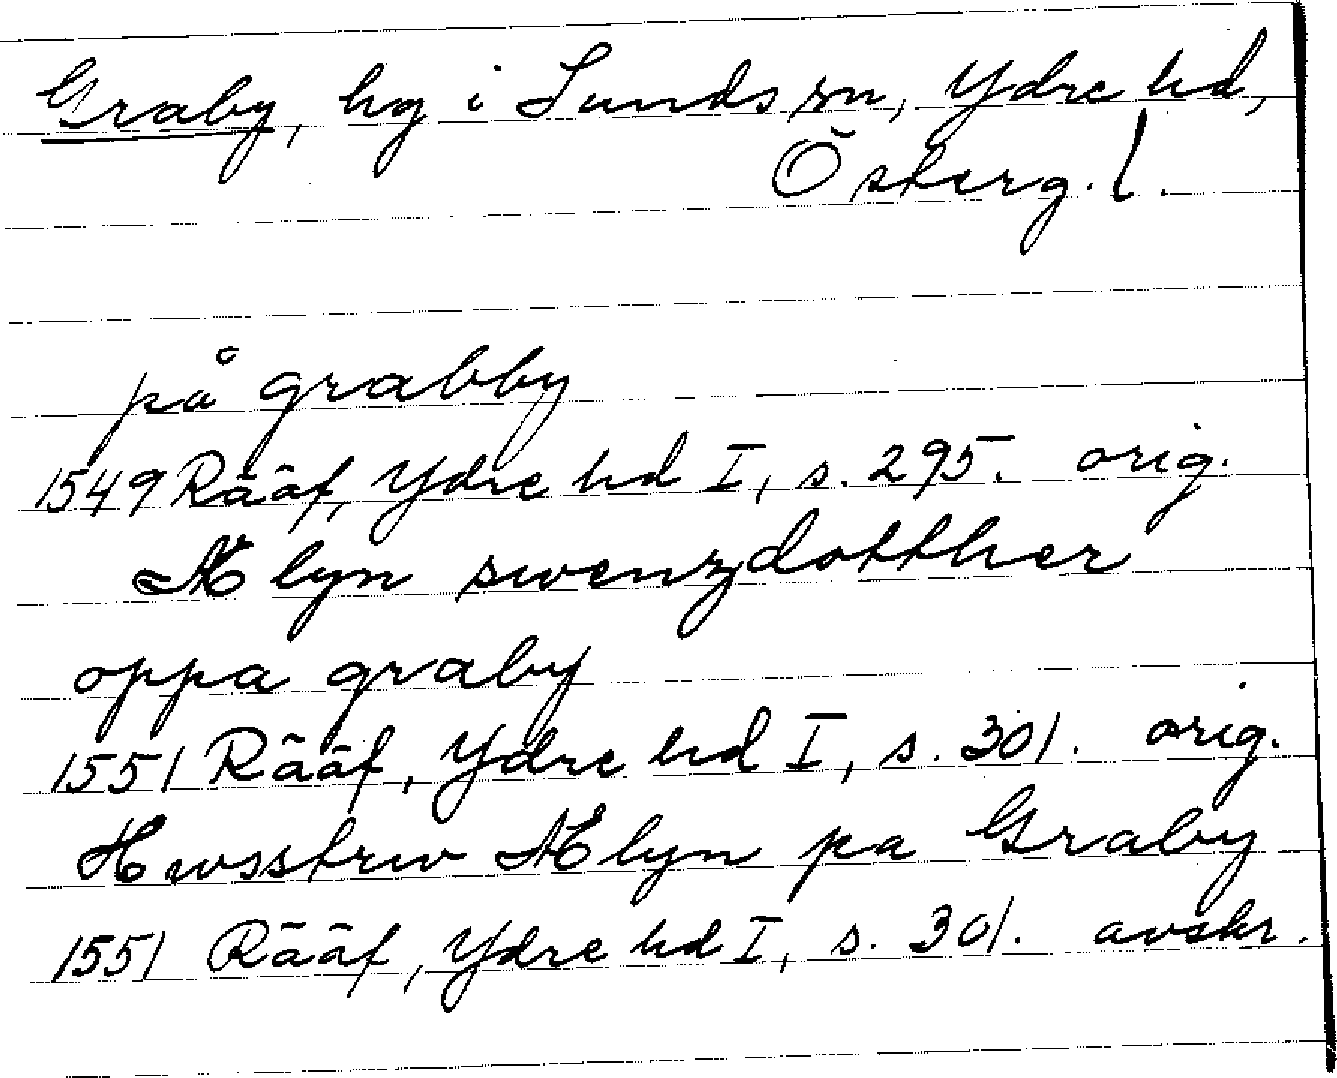 Graby, hg i Sunds sn, Ydre hd,
Österg. l.
på grabby
1549 Rääf, Ydre hd I, s. 295. orig.
Ælyn swenzdotther
oppa graby
1551 Rääf, Ydre hd I, s. 301. orig.
Hwsstrw Ælyn pa Graby
1551 Rääf, Ydre hd I, s. 301. avskr.